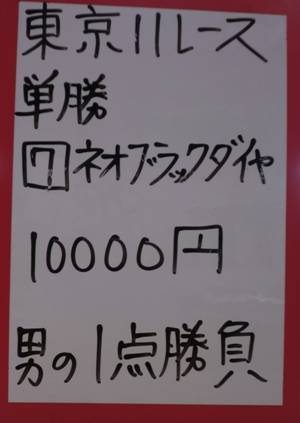 東京11レース
単勝
7 ネオブラックダイヤ
10000円
男の1点勝負